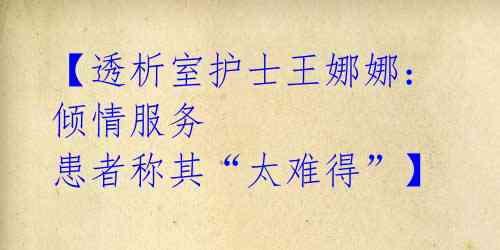 【透析室护士王娜娜：
倾情服务
患者称其“太难得”】